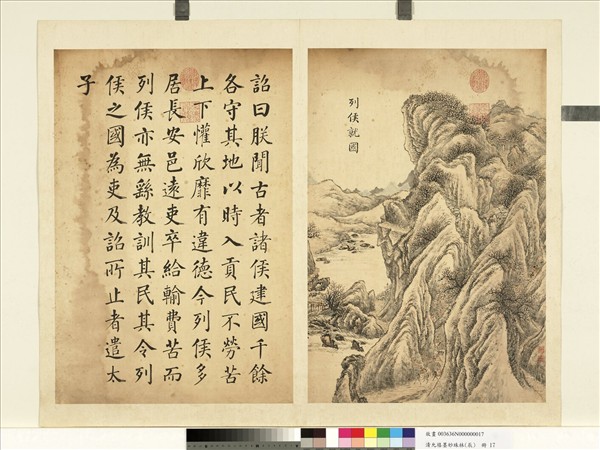 列侯就國
詔曰朕聞古者諸侯建國千餘
各守其地以時入貢民不勞苦
上下懽欣靡有違德今列侯多
居長安邑遠吏卒給輸費苦而
列侯亦無繇教訓其民其令列
侯之國為吏及詔所止者遣太
子
故畫 003636N000000017
清允禧墨妙珠林(亥) 冊 17